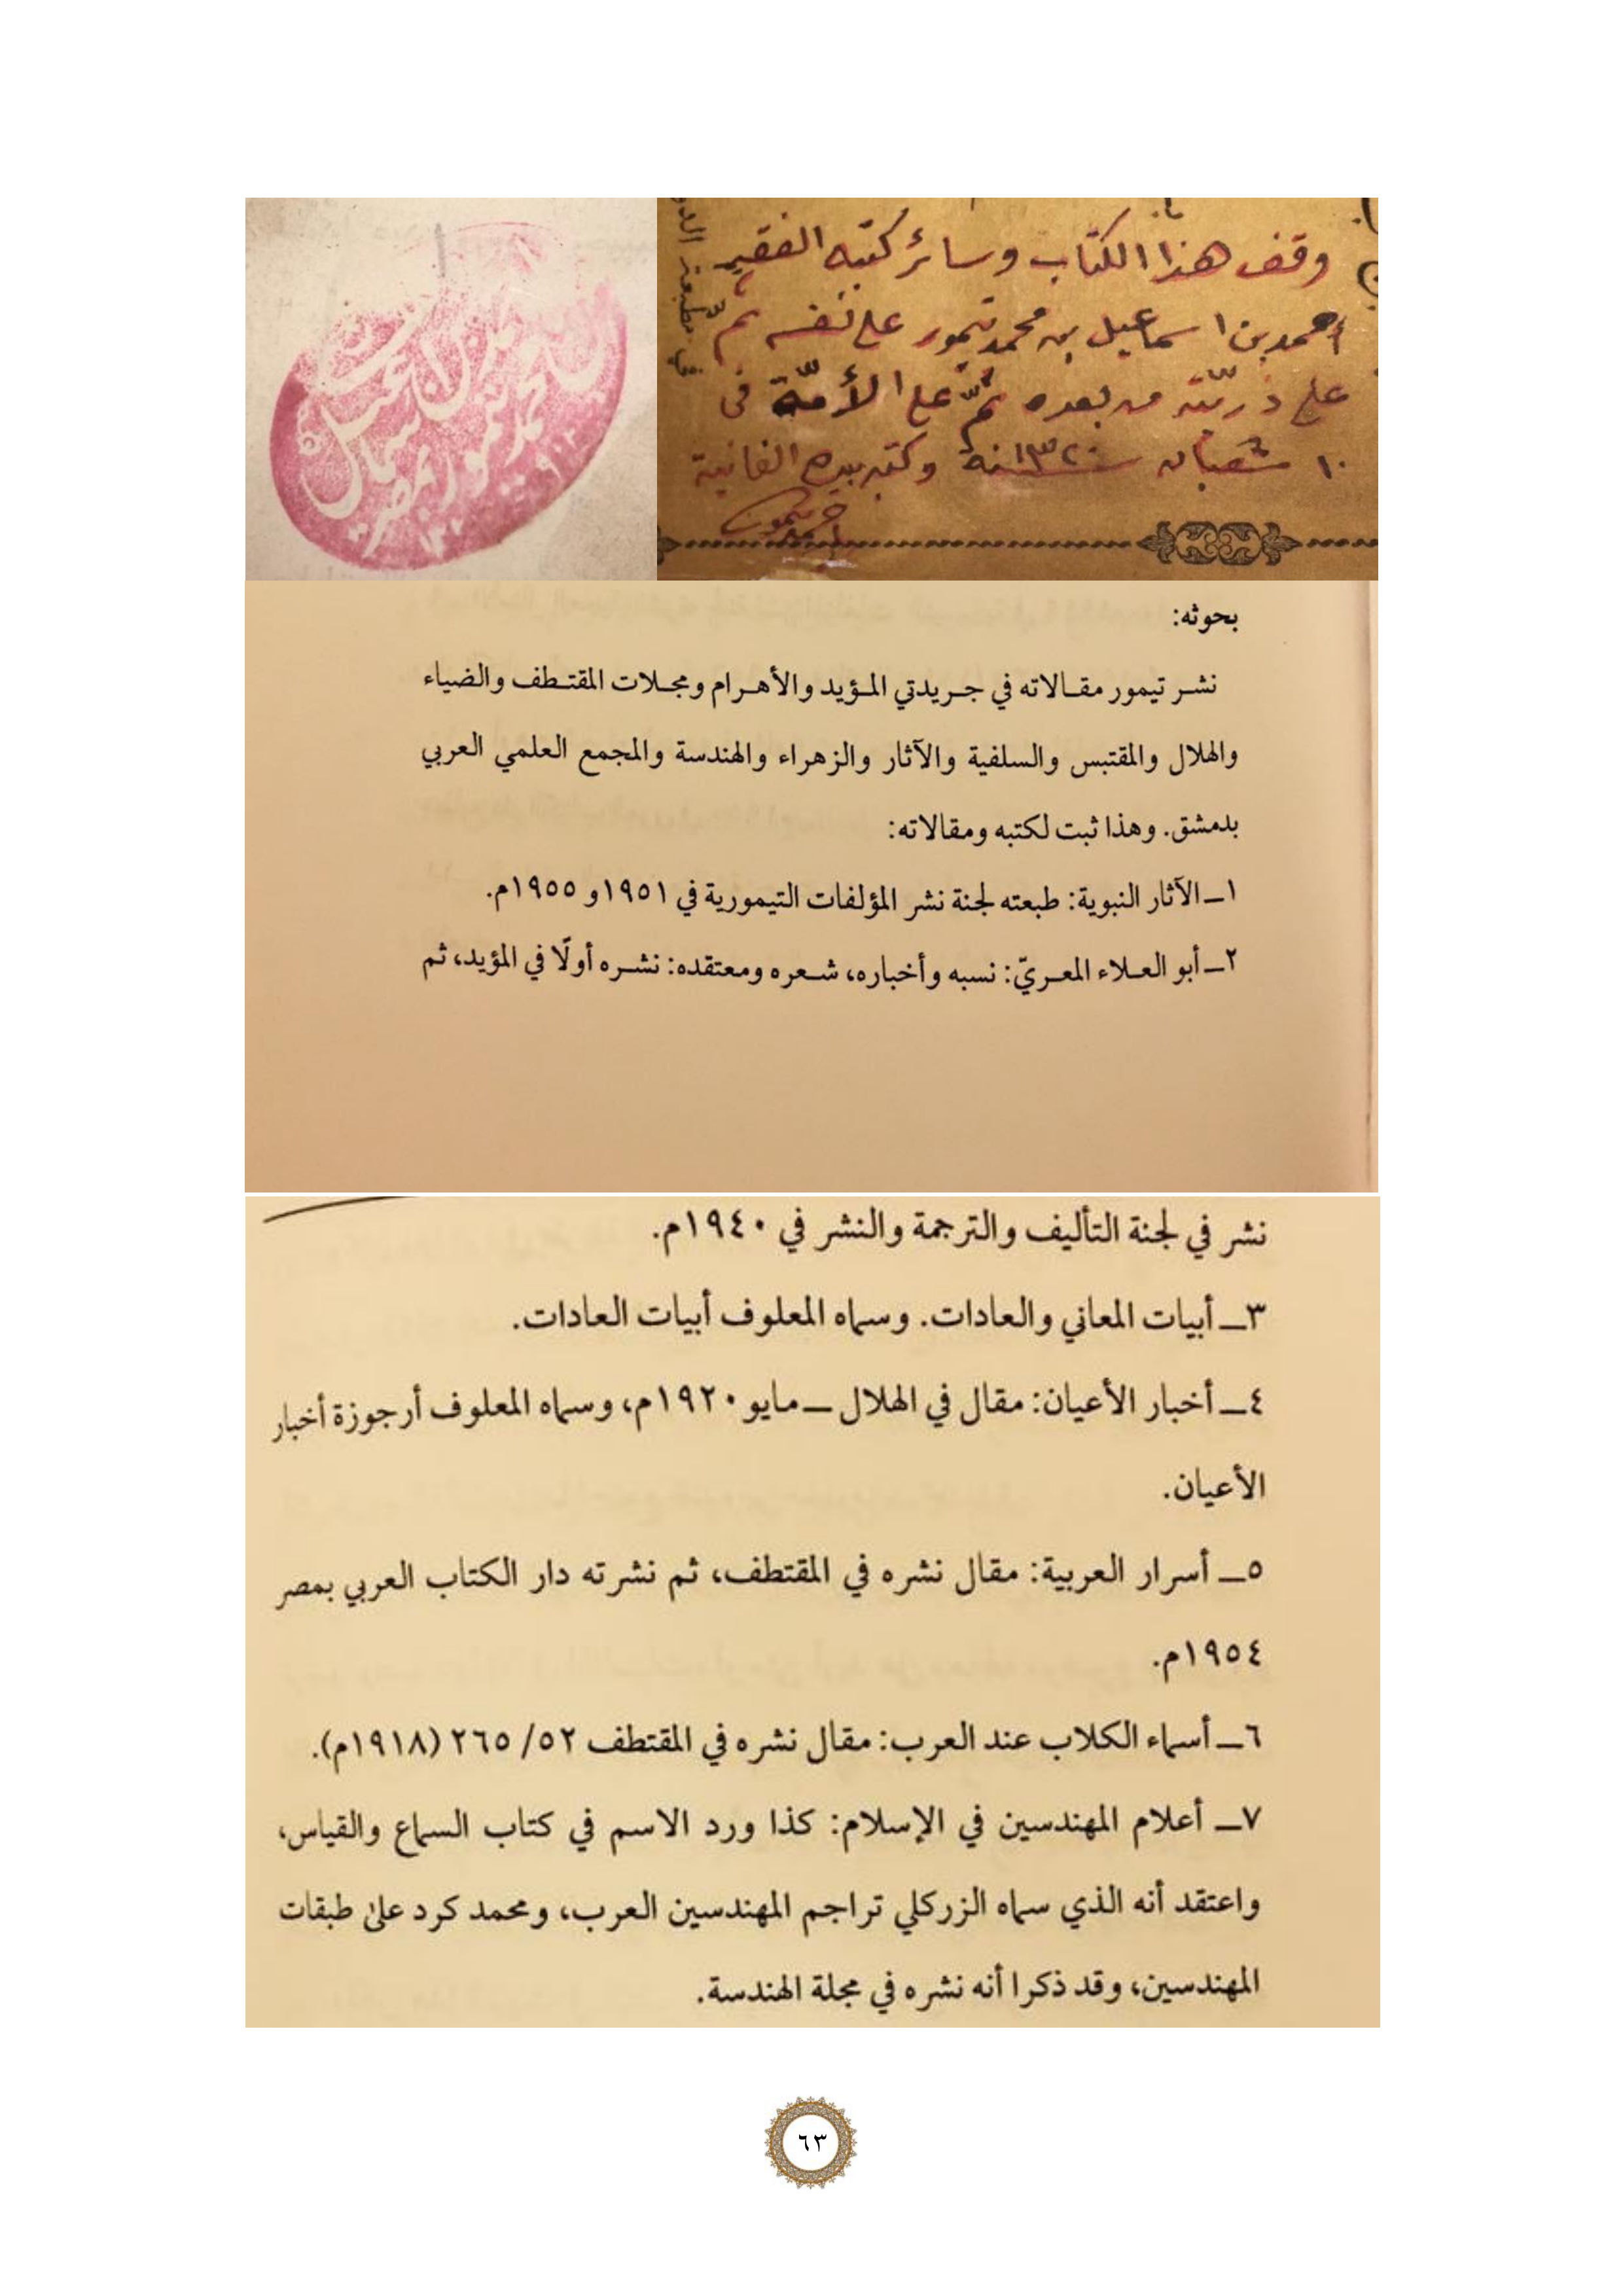 وقف هذا الكتاب وسائر كتبه الفقير
أحمد بن اسماعيل بن محمد تيمور على نفسه ثمّ
على ذريّته من بعده ثمّ على الأمّة في
١٠ شعبان سنة ١٣٢٠ وكتبه بيده الفانية
أحمد تيمور
بحوثه:
نشر تيمور مقالاته في جريدتي المؤيد والأهرام ومجلات المقتطف والضياء
والهلال والمقتبس والسلفية والآثار والزهراء والهندسة والمجمع العلمي العربي
بدمشق. وهذا ثبت لكتبه ومقالاته:
١ــ الآثار النبوية: طبعته لجنة نشر المؤلفات التيمورية في ١٩٥١ و ١٩٥٥م.
٢ــ أبو العلاء المعريّ: نسبه وأخباره، شعره ومعتقده: نشره أولًا في المؤيد، ثم
نشر في لجنة التأليف والترجمة والنشر في ١٩٤٠م.
٣ــ أبيات المعاني والعادات. وسماه المعلوف أبيات العادات.
٤ــ أخبار الأعيان: مقال في الهلال ــ مايو ١٩٢٠م، وسماه المعلوف أرجوزة أخبار
الأعيان.
٥ــ أسرار العربية: مقال نشره في المقتطف، ثم نشرته دار الكتاب العربي بمصر
١٩٥٤م.
٦ــ أسماء الكلاب عند العرب: مقال نشره في المقتطف ٥٢/ ٢٦٥ (١٩١٨م).
٧ــ أعلام المهندسين في الإسلام: كذا ورد الاسم في كتاب السماع والقياس،
واعتقد أنه الذي سماه الزركلي تراجم المهندسين العرب، ومحمد كرد على طبقات
المهندسين، وقد ذكرا أنه نشره في مجلة الهندسة.
٦٣